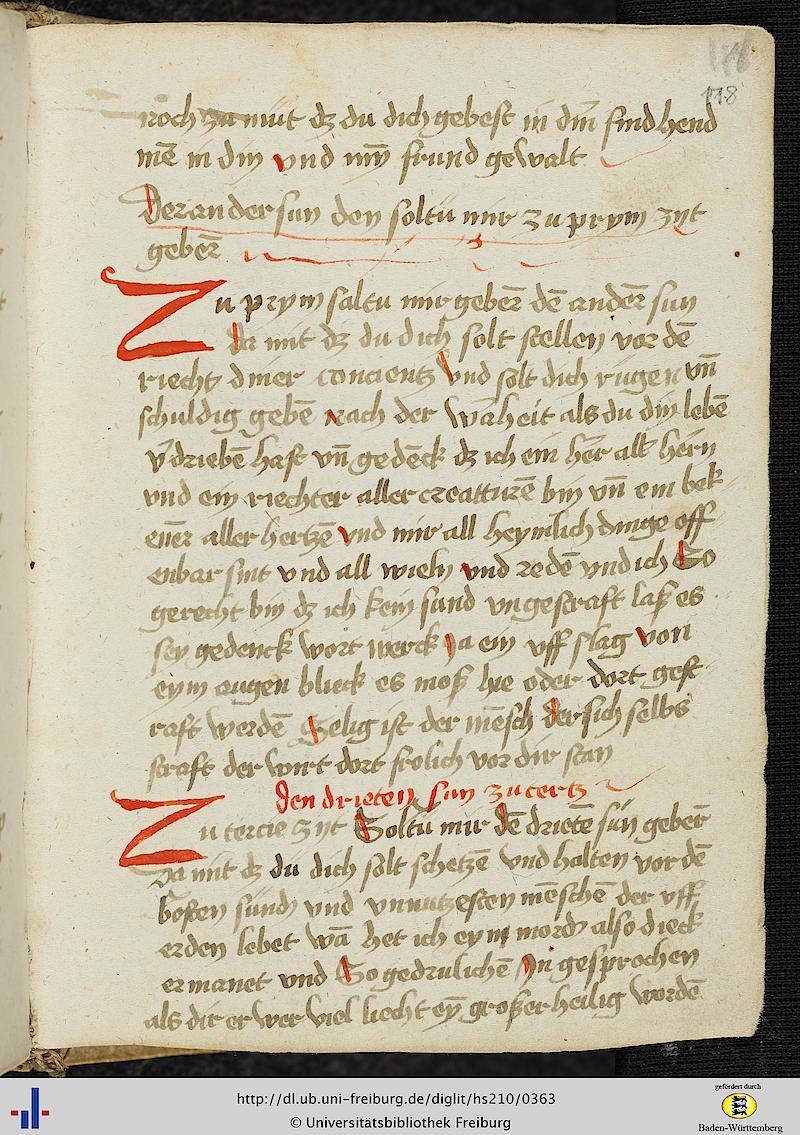 118
noch zu mut dz du dich gebest in din find hend
me in din vnd myn frund gewalt
Der ander sun den soltu mir zu prym zyt
geben̄
Zu prym saltu mir geben̄ dē anderr̄ sun
da mit dz du dich solt stellen vor dē
riecht diner concientz vnd solt dich rugen vn̄
schuldig gebē nach der waheit als du din lebē
v̓driebē hast vn̄ gedēck dz ich ein her̄ all her̄n
vnd ein riechter aller creatturē bin vn̄ ein bek
ener̄ aller hertzē vnd mir all heymlich dinge off
enbar sint vnd all wieln vnd redē vnd ich So
gerecht bin dz ich kein sund vngestraft laß es
sey gedenck wort werck Ja ein vff slag von
eym augen blick es moß hie oder dort gest
raft werdē Selig ist der mēsch der sich selbs
straft der wirt dort frolich vor dir stan
den drieten sun zu tertz
Zu tercie zyt Soltu mir dē drietē sún geben̄
Da mit dz du dich solt schetzē vnd halten vor dē
bosten sund vnd vnnutzesten mēschē der vff
erden lebet wā het ich eym mord also dieck
ermanet vnd So gedrulichē In gesprochen
als dir er wer viel liecht ey großer heilig wordē
http://dl.ub.uni-freiburg.de/diglit/hs210/0363
© Universitätsbibliothek Freiburg
gefördert durch
Baden-Württemberg